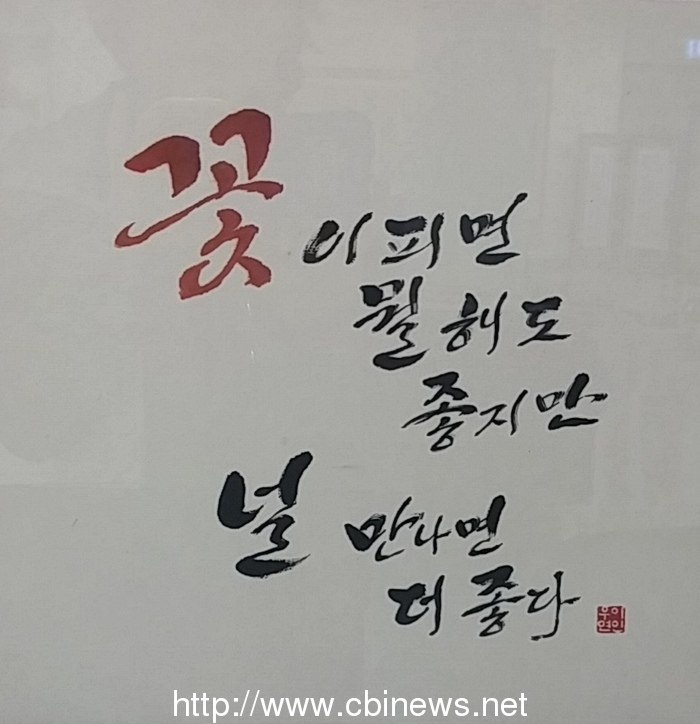 꽃이피면
뭘해도
좋지만
널 만나면
더 좋다
http://www.cbinews.net